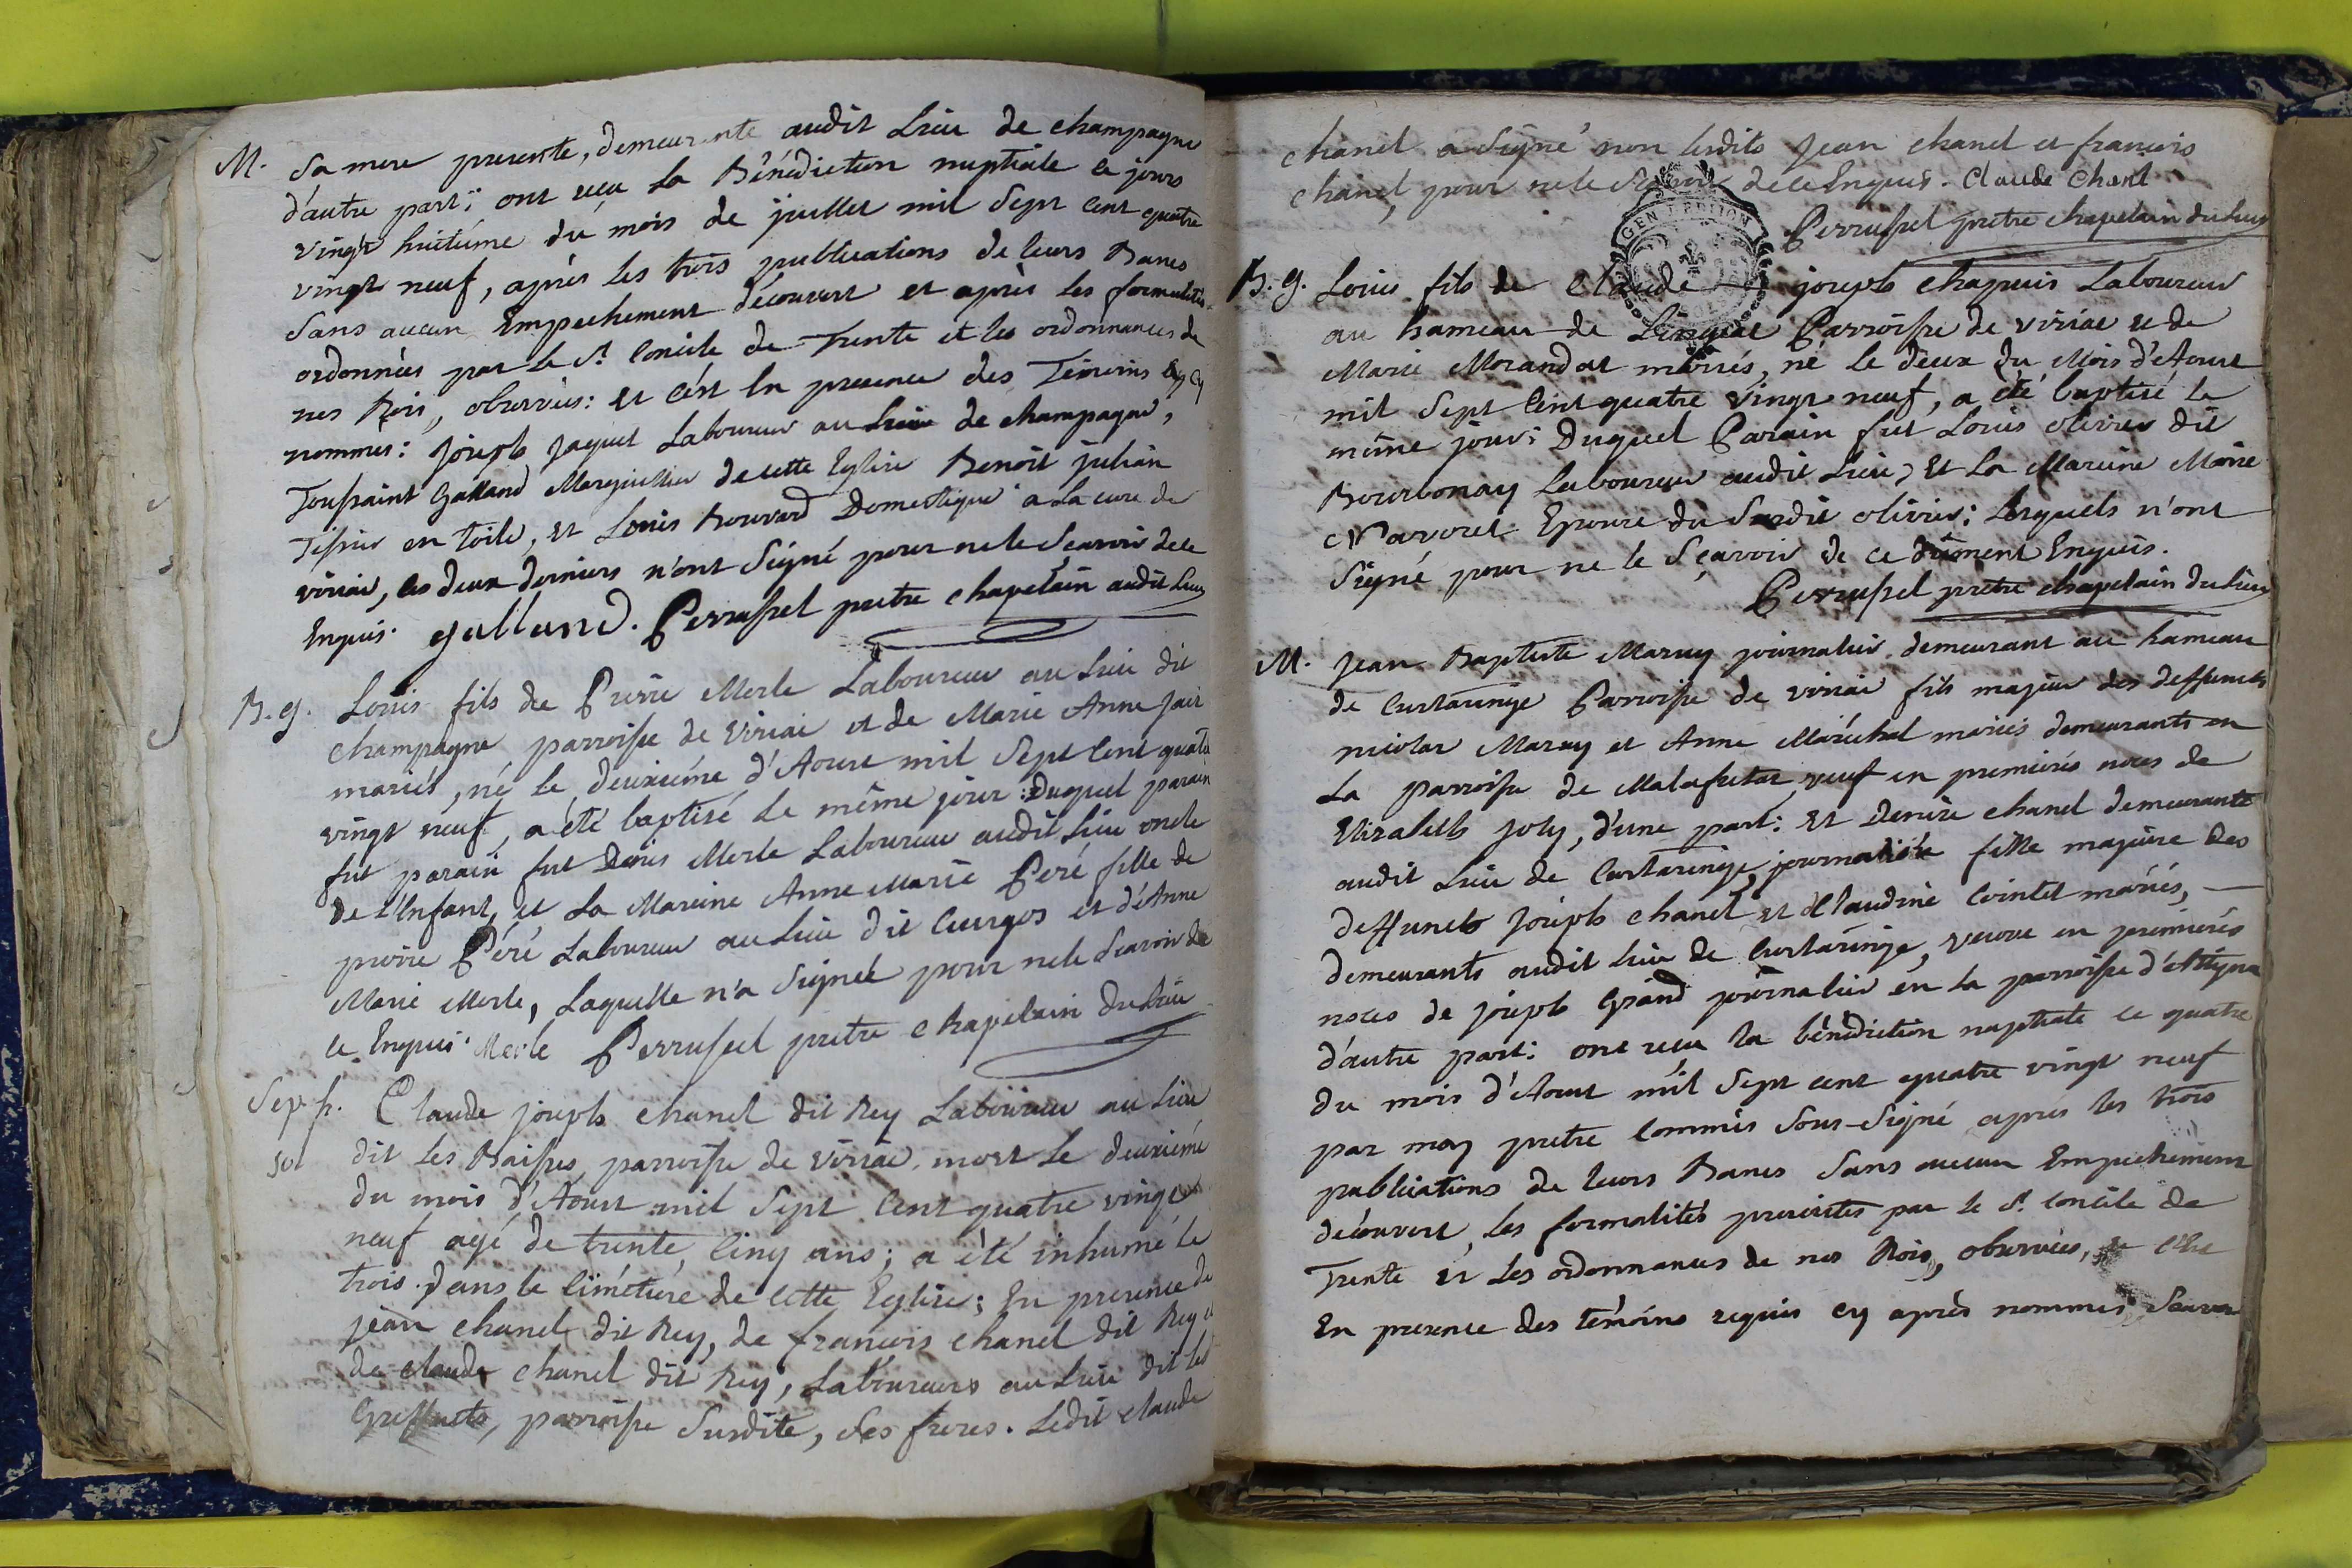 M. Sa mere presente, demeurante audit Lieu de champagne
d'autre part; ont reçu La Bénédiction nuptiale ce jours
vingt huitiéme du mois de juillet mil Sept Cent quatre
vingt neuf, aprés les trois publications de leurs Bancs
Sans aucun Empechement découvert et après les formalités
ordonnées par Le St. Concile de Trente et les ordonnances de
nos Rois, observées: et c'est En presence des Témoins Cy
nommés: joseph jaquet Laboureur au Lieu de champagne,
Toussaint Galland Marguillier de cette Eglise Benoit julian
Tissier en toile, et Louis Bouvard Domestique a La cure de
viriai, les deux derniers n'ont Signé pour ne le Sçavoir de ce
Enquis. galland. Perrussel pretre chapelain audit Lieu
B. g. Louis fils de Pierre Merle Laboureur au Lieu dit
champagne parroisse de viriai et de Marie Anne jair
mariés, né le deuxiéme d'Aoust mil Sept Cent quatre
vingt neuf, a été baptisé Le même jour: Duquel parain
fut parain fut Denis Merle Laboureur audit Lieu oncle
de l'Enfant, et La Mareine Anne Marie Peré fille de
pierre Péré Laboureur au Lieu dit Curges et d'Anne
Marie Merle, Laquelle n'a Signée pour ne le Sçavoir de
ce Enquis. Merle Perrussel pretre chapelain du Lieu
Sep. h. Claude joseph chanel dit Rey Laboureur au Lieu
dit Les Baisses, parroisse de viriac, mort Le deuxiéme
du mois d'Aoust mil Sept Cent quatre vingt
neuf agé de trente Cinq ans; a été inhumé le
trois. Dans le Cimétiere de Cette Eglise; En presence de
jean chanel dit Rey, de francois chanel dit Rey et
de claude chanel dit Rey, Laboureurs au Lieu dit les
Greffets, parroisse Susdite, Ses freres. Ledit claude
chanel a Signé non lesdits jean chanel et francois
chanel, pour ne le Sçavoir de ce Enquis. Claude Chanl
GEN LEDIION
Perrussel pretre chapelain du Lieu
B. g. Louis fils de Claude joseph chapuis Laboureur
au hameau de Lingeat Parroisse de viriac et de
Marie Morandat mariés, né le deux du Mois d'Aoust
mil Sept Cent quatre Vingt neuf, a été baptisé le
même jour: Duquel Parain fut Louis olivier dit
Bourbonay Laboureur audit Lieu, Et La Mareine Marie
Marvoret Epouse du Susdit olivier: Lesquels n'ont
Signé pour ne le Sçavoir de ce dûment Enquis.
Perrussel pretre chapelain du Lieu
M. jean Baptiste Maruy journalier demeurant au hameau
de Curtaringe Parroisse de viriai fils majeur des deffuncts
nicolas Maruy et Anne Maréchal mariés demeurants en
La parroisse de Malafretaz veuf en premiéres noces de
Elizabeth joly, d'une part: Et Denise chanel demeurante
audit Lieu de Curtaringe, journaliére fille majeure des
deffuncts joseph chanel et Claudine Cointet mariés,
demeurants audit Lieu de Curtaringe, veuve en premiéres
noces de joseph Grand journalier en La parroisse d'Attigna
d'autre part: ont reçu la bénédiction nuptiale ce quatre
du mois d'Aoust mil Sept cent quatre vingt neuf
par moy pretre Commis Sous-Signé aprés les trois
publications de leurs Bancs Sans aucun Empechement
découvert, les formalités prescrites par le St. Concile de
Trente et Les ordonnances de nos Rois, observées,
En presence des témoins requis cy après nommés Sçavoir